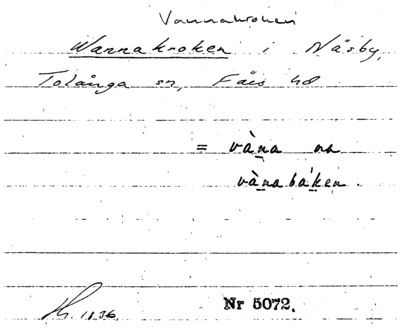 Vannakroken
Wannakroken i Näsby,
Tolånga sn, Färs hd
= vàna na
vànabáken.
1936.
Nr 5072.